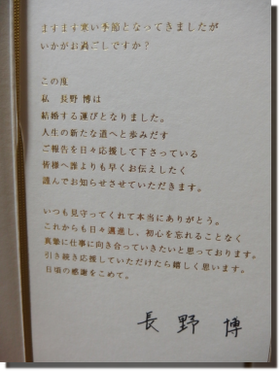 ますます寒い季節となってきましたが
いかがお過ごしですか？
この度
私　長野 博は
結婚する運びとなりました。
人生の新たな道へと歩みだす
ご報告を日々応援して下さっている
皆様へ誰よりも早くお伝えしたく
謹んでお知らせさせていただきます。
いつも見守ってくれて本当にありがとう。
これからも日々邁進し、初心を忘れることなく
真摯に仕事に向き合っていきたいと思っております。
引き続き応援していただけたら嬉しく思います。
日頃の感謝をこめて。
長野 博